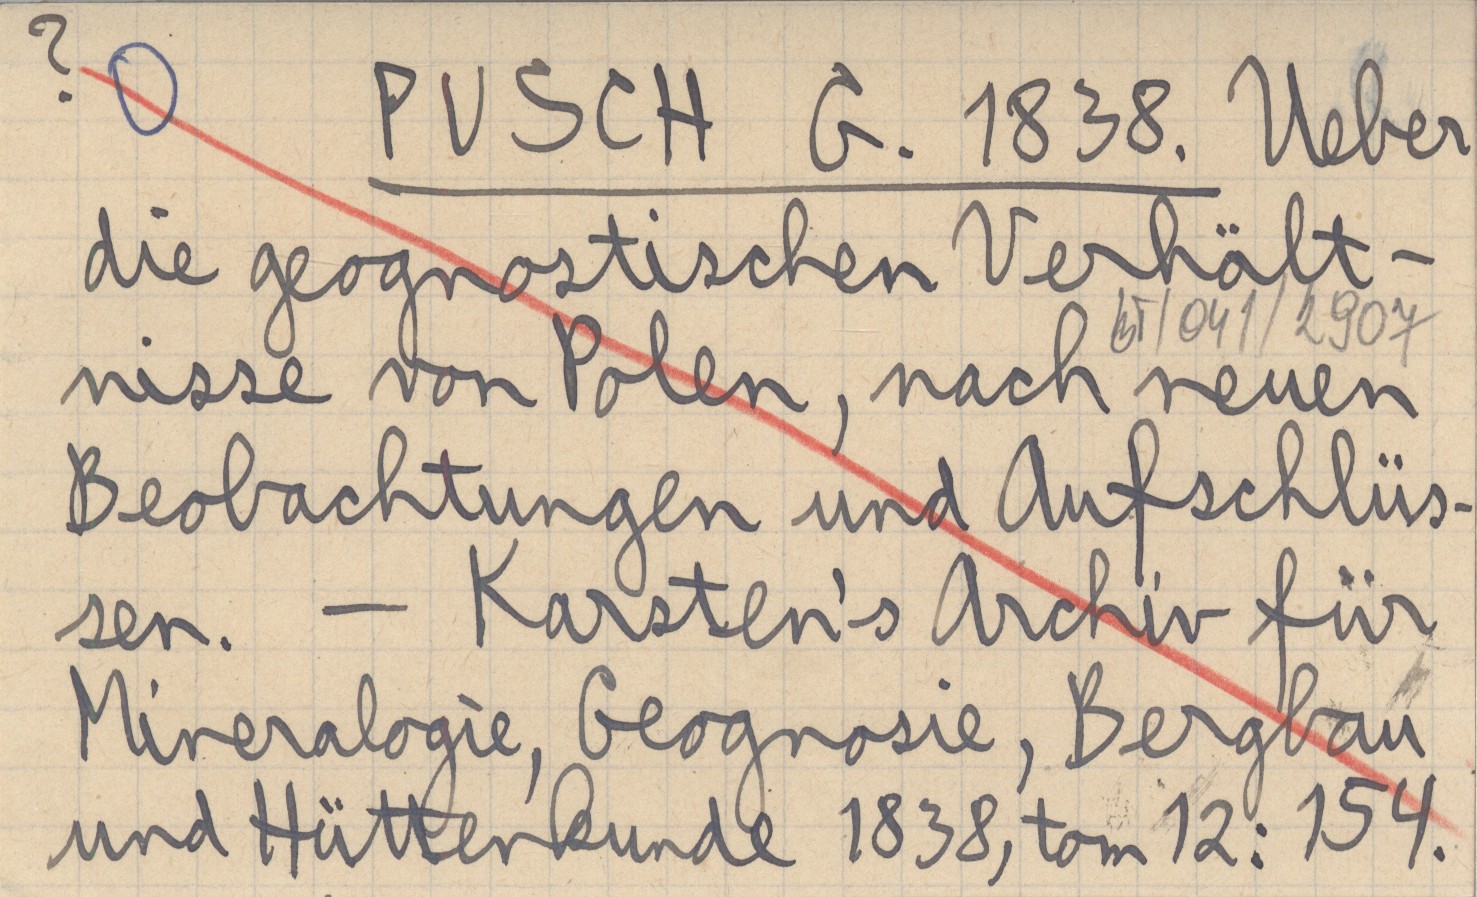 ?
PUSCH G. 1838. Ueber
die geognostischen Verhält-
nisse von Polen, nach neuen
/041/2907
Beobachtungen und Aufschlüs-
sen. — Karsten's Archiv für
Mineralogie, Geognosie, Bergbau
und Hüttenkunde 1838, tom 12: 154.